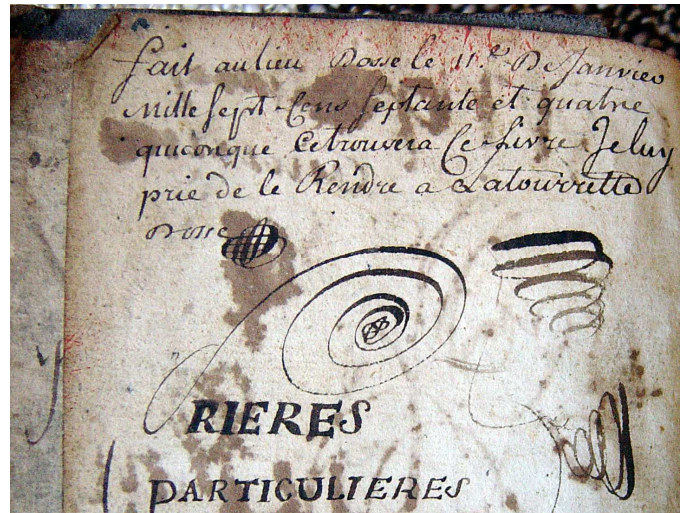 fait au lieu Dosse le 11.e De Janvier
Mille sept Cens septante et quatre
quiconque Letrouvera Ce Livre Jeluy
prie de le Rendre a Latourrette
Dosse
RIERES
PARTICULIERES